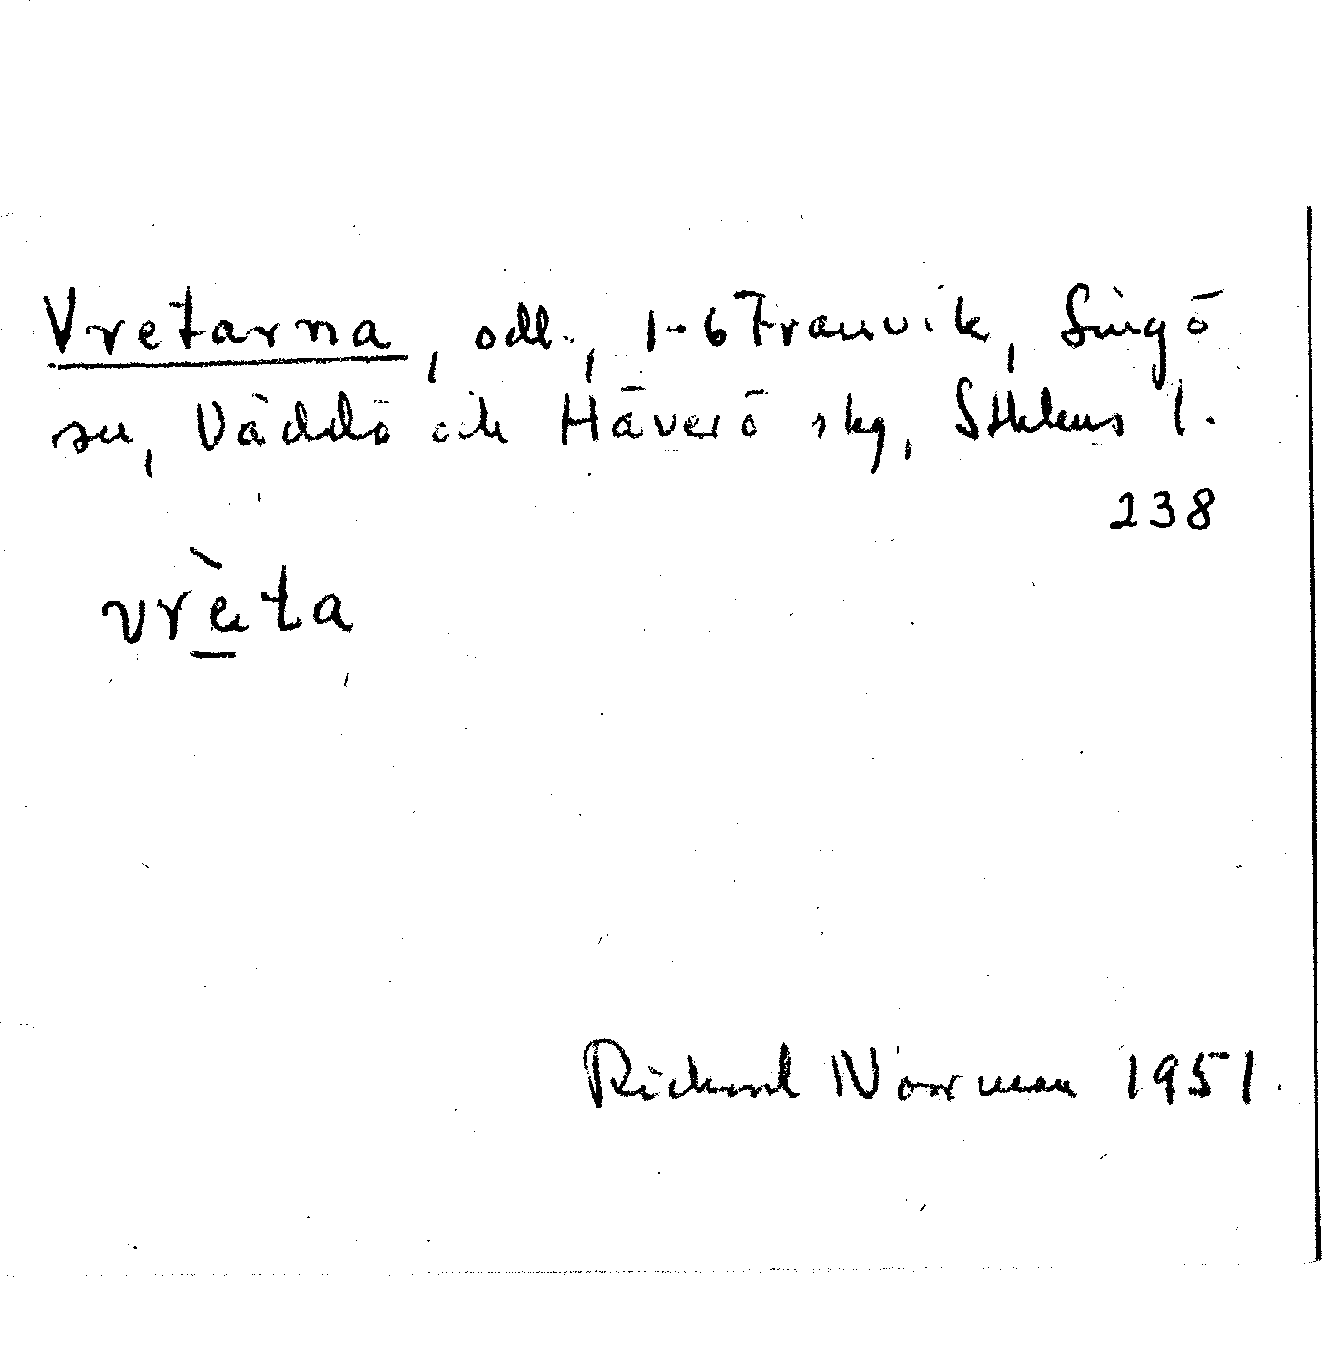 Vretarna, odl., 1-6 Tranvik, Singö
sn, Väddö och Häverö skg, Sthlms l.
238
vrèta
Richard Norrman 1951.